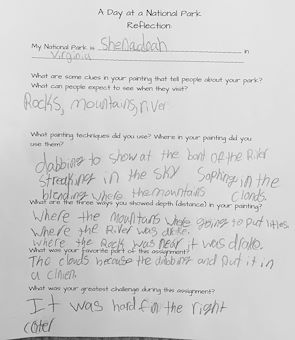 A Day at a National Park
Reflection:
My National Park is Shenadoah in
Virginia
What are some clues in your painting that tell people about your park?
What can people expect to see when they visit?
Rocks, mountains, river
What painting techniques did you use? Where in your painting did you
use them?
dabbing to show at the bant of the River
streaking in the sky in the
blending where the mountains clouds.
What are the three ways you showed depth (distance) in your painting?
Where the mountains where going to put littles.
Where the River was drake.
where the Rock was near it was drake.
What was your favorite part of this assignment?
The clouds because the dabbing and put it in
a
What was your greatest challenge during this assignment?
It was hard fin the right
coler